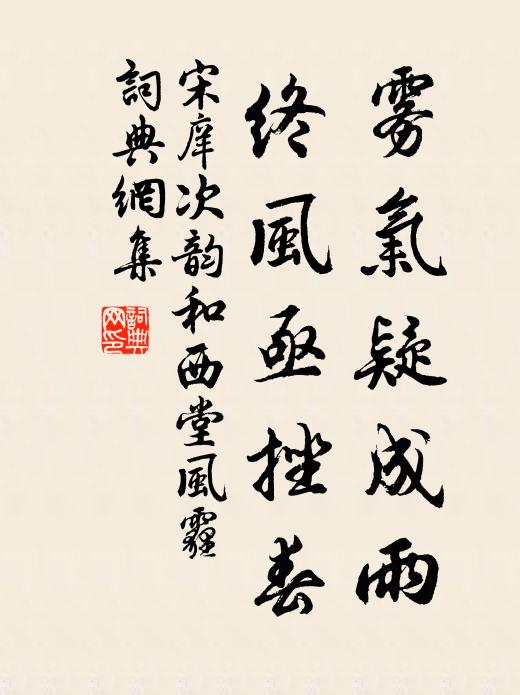 雾氣疑成雨
終風亟挫春
宋庠次韵和西堂風霾
詞典網集
詞典
网印